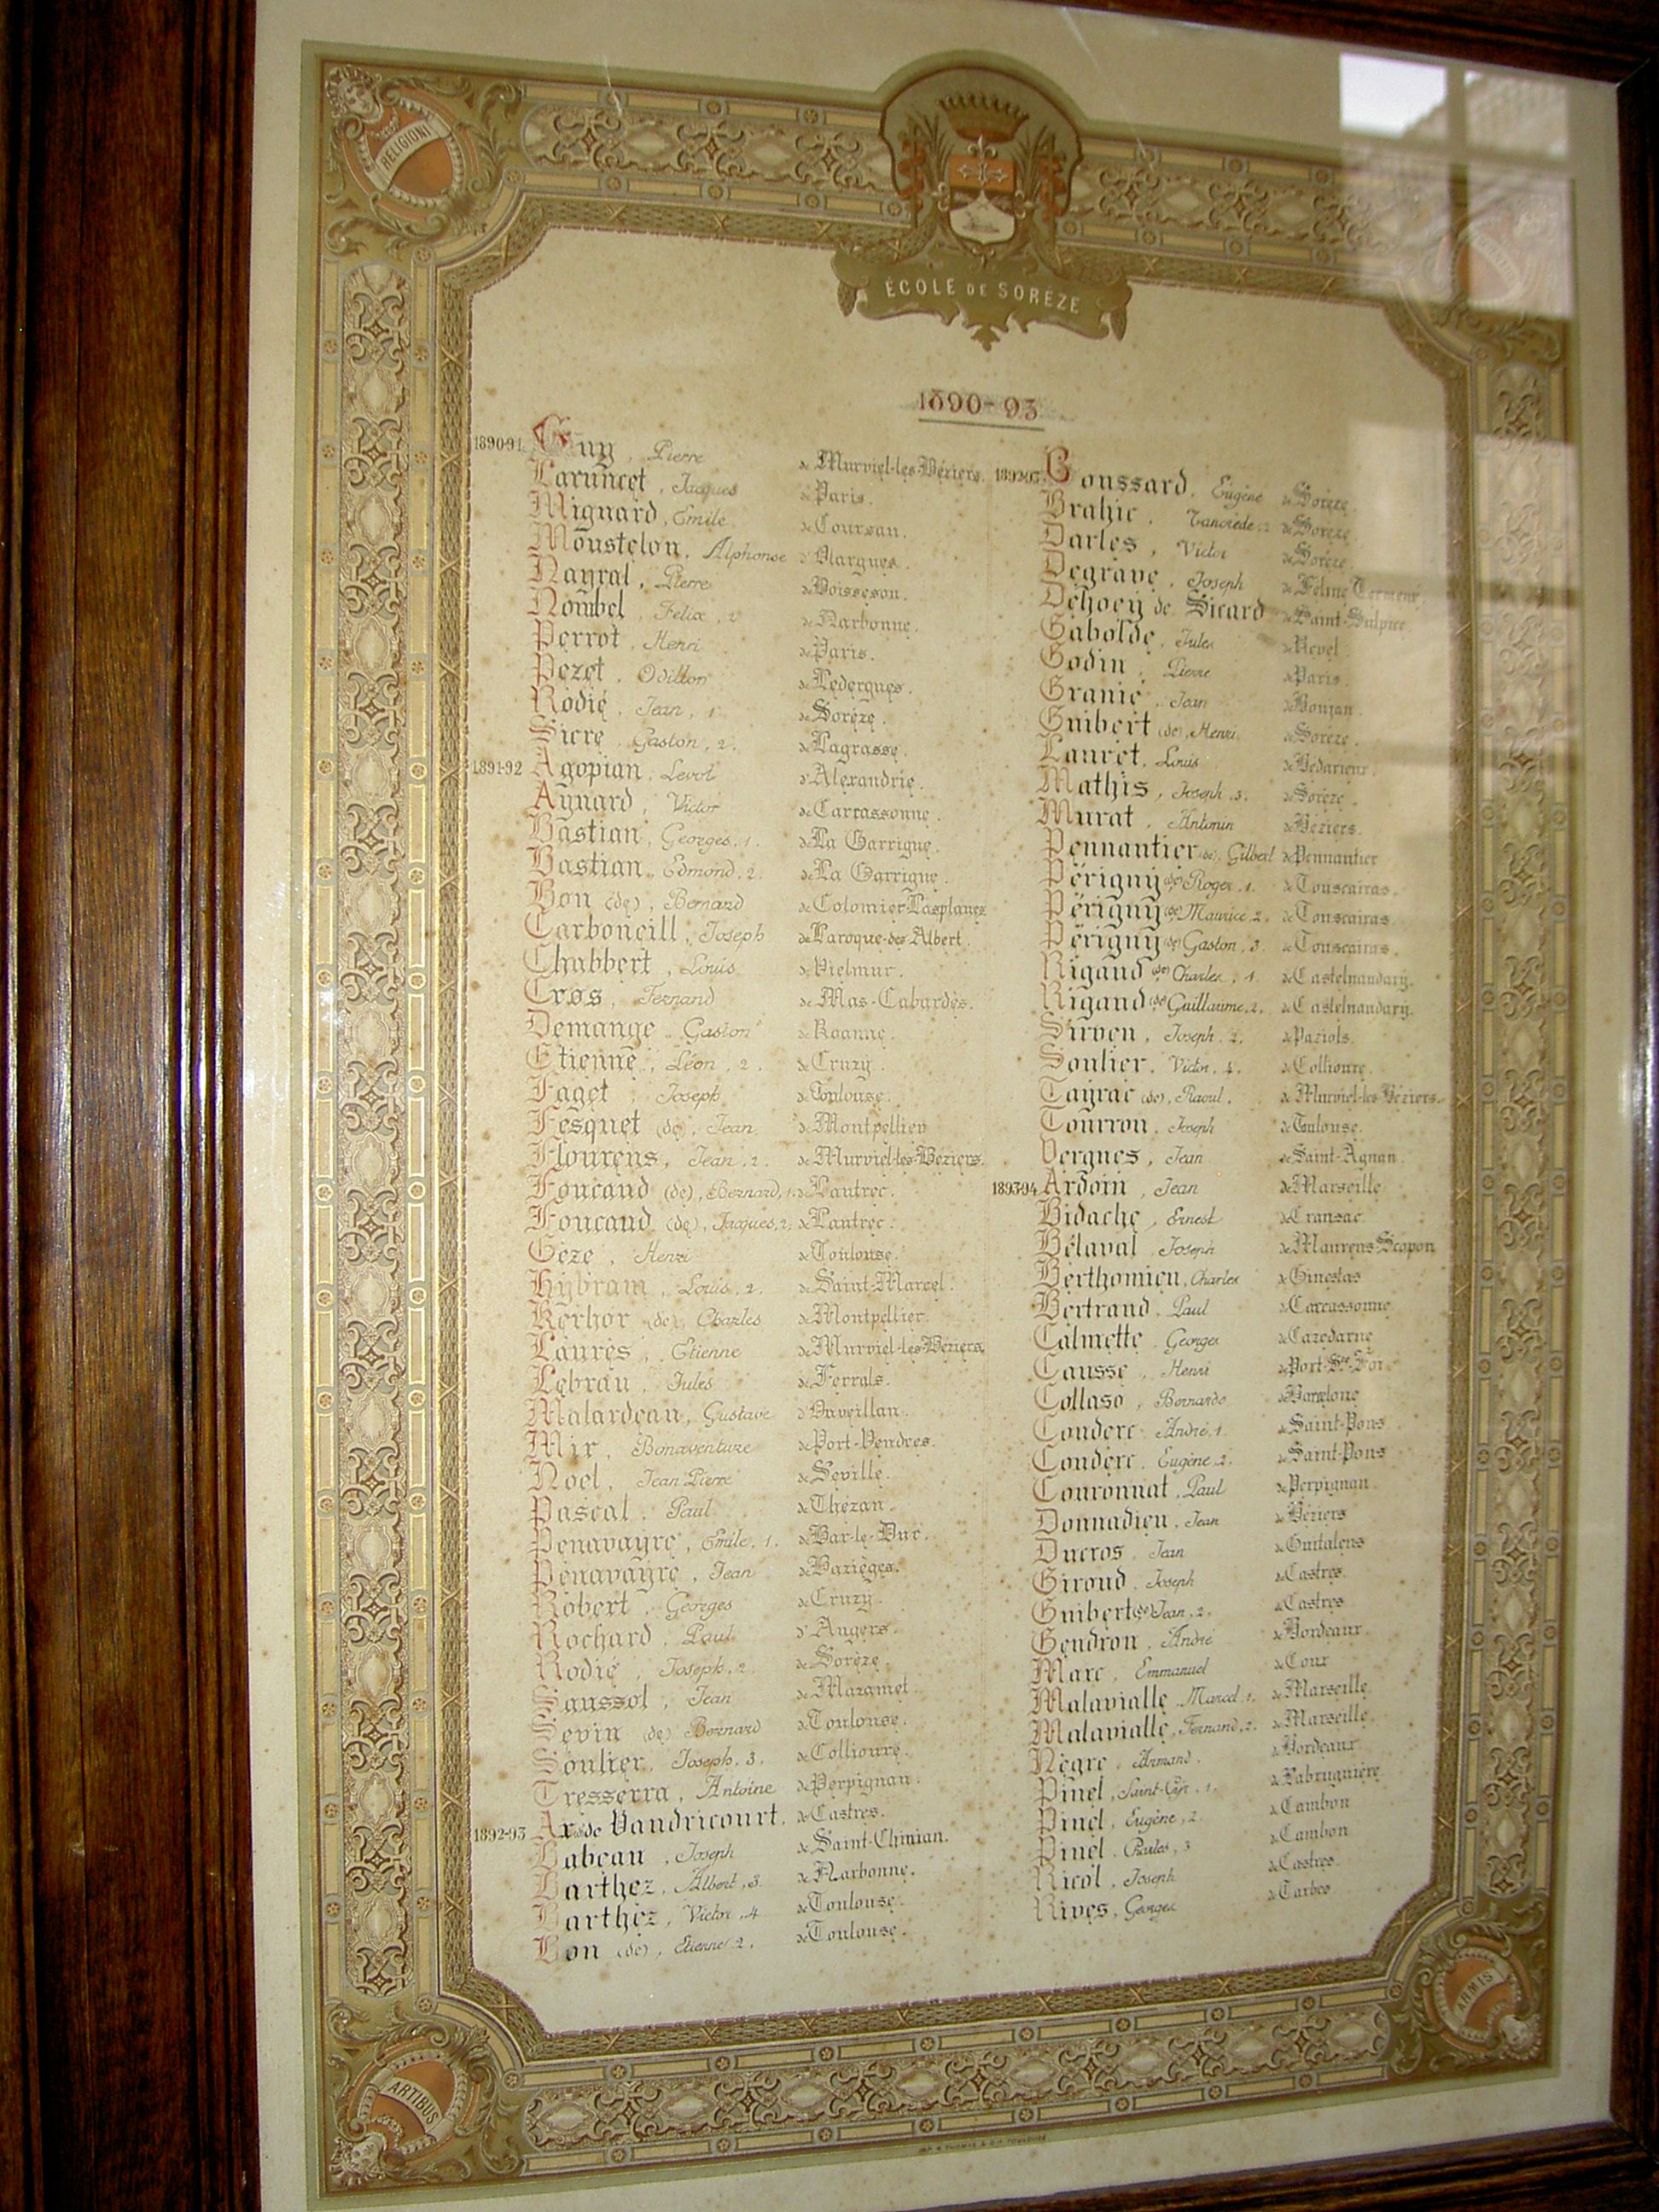 RELIGIONI
ÉCOLE DE SORÈZE
1890-93
1890-91. Guy, Pierre de Murviel-les-Béziers.
Jacques de Paris.
Mignard, Emile de Coursan.
Moustelon, Alphonse d'Olargues.
Nayral, Pierre de Boisseson.
Nombel, Felix, 2 de Narbonne.
Perrot, Henri de Paris.
Pezet, Odillon de Ledergues.
Rodié, Jean, 1 de Sorèze.
Sicre, Gaston, 2. de Lagrasse.
1891-92 Agopian, d'Alexandrie.
Aynard, Victor de Carcassonne.
Bastian, Georges, 1. de La Garrigue.
Bastian, Edmond, 2. de La Garrigue.
Bon (de), Bernard de Colomier-Lasplanes
Carboneill, Joseph de Laroque-des-Albert.
Chabbert, Louis de Vielmur.
Cros, Fernand de Mas-Cabardès.
Demange, Gaston de Roanne.
Etienne, Léon, 2. de Cruzy.
Faget, Joseph de Toulouse.
Fesquet (de), Jean de Montpellier
Flourens, Jean, 2. de Murviel-les-Béziers.
Foucaud (de), Bernard, 1. de Lautrec.
Foucaud (de), Jacques, 2. de Lautrec.
Gèze, Henri de Toulouse.
Hybram, Louis, 2. de Saint-Marcel.
Kerhor (de), Charles de Montpellier.
Laurès, Etienne de Murviel-les-Béziers
Lebrau, Jules de Ferrals.
Malardeau, Gustave d'Ouveillan.
Mir, Bonaventure de Port-Vendres.
Noel, Jean Pierre de Séville.
Pascal, Paul de Thézan.
Penavayre, Emile, 1. de Bar-le-Duc.
Penavayre, Jean de Bazièges.
Robert, Georges de Cruzy.
Rochard, Paul d'Angers.
Rodié, Joseph, 2. de Sorèze.
Saussol, Jean de Mazamet.
Sevin (de) Bernard de Toulouse.
Soulier, Joseph, 3. de Collioure.
Tresserra, Antoine de Perpignan.
1892-93 de Vandricourt, de Castres.
Babeau, Joseph de Saint-Chinian.
Barthez, Albert, 3. de Narbonne.
Barthez, Victor, 4 de Toulouse.
Bon (de), Etienne, 2. de Toulouse.
Boussard, Eugène de Sorèze
Brahic, Tancrède de Sorèze
Darles, Victor de Sorèze
Degrave, Joseph de
Dehoey de Sicard de Saint-Sulpice
Gabolde, Jules de Revel
Godin, Pierre de Paris.
Granié, Jean de Boujan
Guibert (de), Henri de Sorèze.
Lauret, Louis de Bédarieux.
Mathis, Joseph, 3. de Sorèze.
Murat, Antonin de Béziers.
Pennautier (de), Gilbert de Pennautier
Périgny (de) Roger, 1. de Touscairas.
Périgny (de) Maurice, 2. de Touscairas.
Périgny (de) Gaston, 3 de Touscairas.
Rigaud (de) Charles, 1 de Castelnaudary.
Rigaud (de) Guillaume, 2. de Castelnaudary.
Sirven, Joseph, 2. de Paziols.
Soulier, Victor, 4. de Collioure.
Tayrac (de), Raoul. de Murviel-les-Béziers.
Tourrou, Joseph de Toulouse.
Vergnes, Jean de Saint-Agnan.
1893-94 Ardoin, Jean de Marseille
Bidache, Ernest de Cransac
Bélaval, Joseph de Maurens-Scopon
Berthomieu, Charles de Ginestas
Bertrand, Paul de Carcassonne
Calmette, Georges de Cazedarne
Causse, Henri de Port-Ste-Foi
Collaso, Bernardo de Barcelone
Couderc, André, 1. de Saint-Pons
Couderc, Eugène, 2. de Saint-Pons
Couronnat, Paul de Perpignan
Donnadieu, Jean de Béziers
Ducros, Jean de Guitalens
Giroud, Joseph de Castres.
Guibert (de) Jean, 2. de Castres
Gendron, André de Bordeaux
Marc, Emmanuel de Coux
Malavialle, Marcel, 1. de Marseille
Malavialle, Fernand, 2. de Marseille.
Nègre, Armand. de Bordeaux
Pinel, Saint-Cyr, 1. de Labruguière
Pinel, Eugène, 2. de Cambon
Pinel, Charles, 3 de Cambon
Ricol, Joseph de Castres
Rives, Georges de Tarbes
ARTIBUS
ARMIS